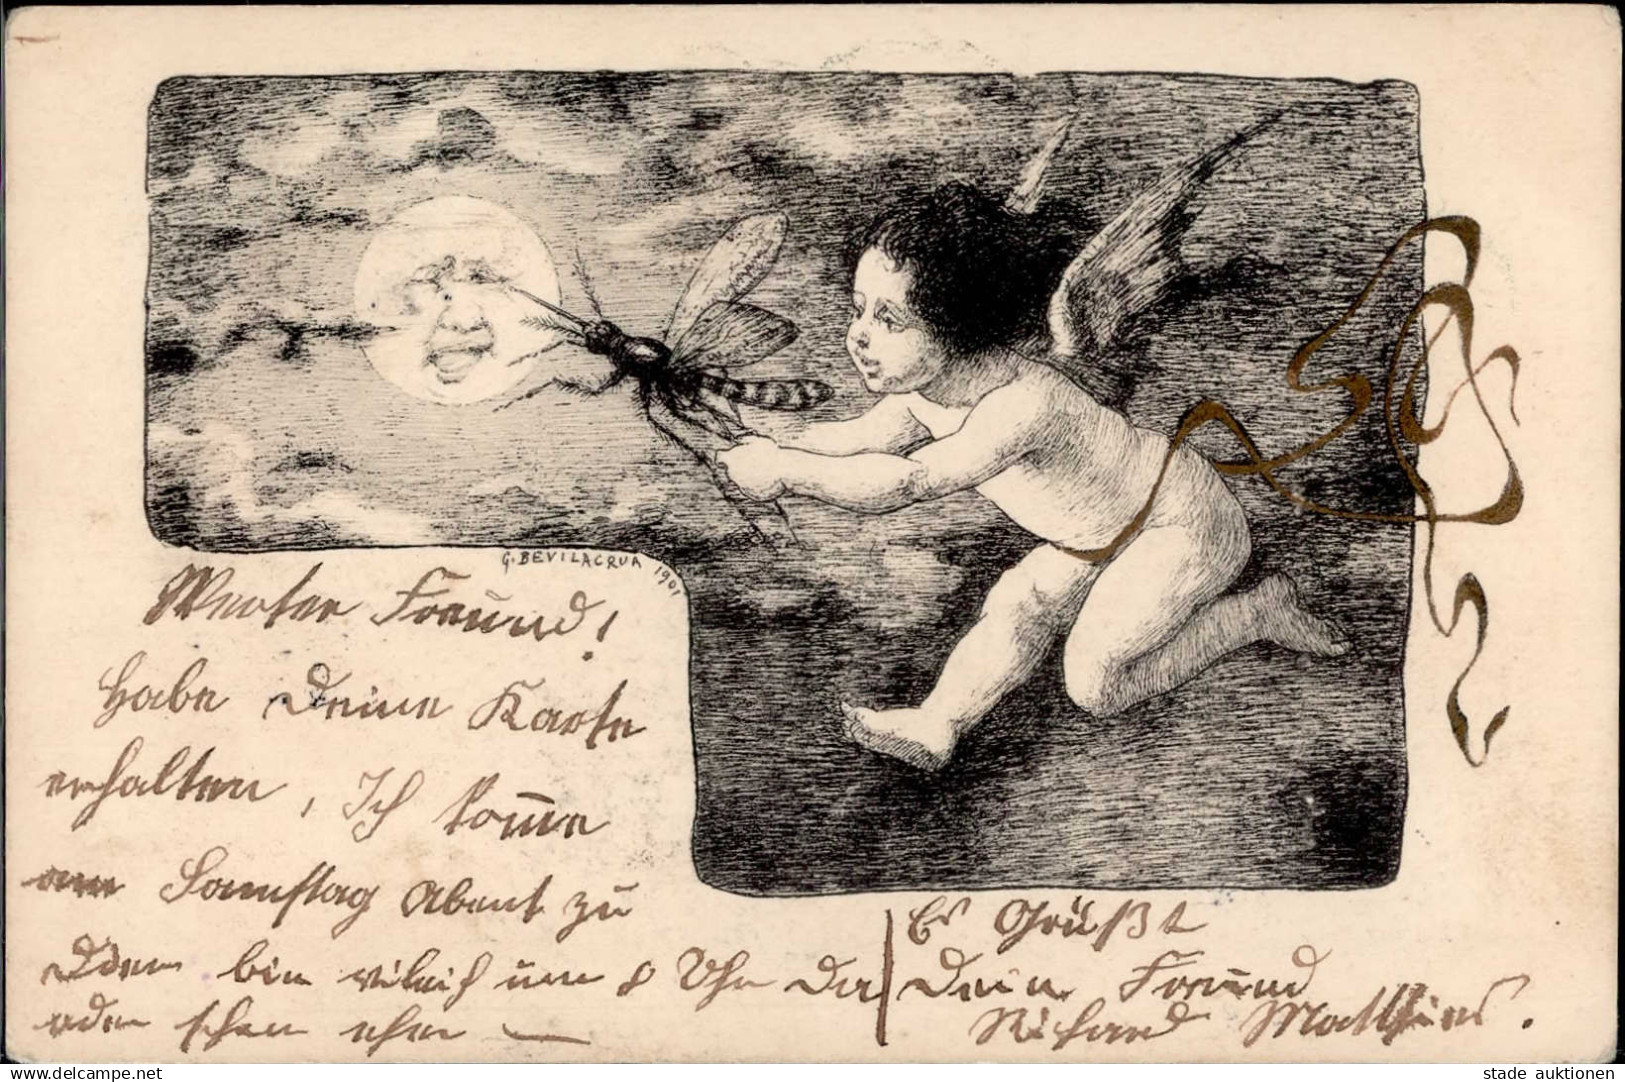 G. BEVILACRUA 1901
Werter Freund!
Habe Deine Karte
erhalten, Ich komme
am Samstag Abent zu
bin vileich um 8 Uhr Da
oder schon eher —
Es Grüßt
Dein Freund
Richard Matthies.
delcampe.net
stade auktionen